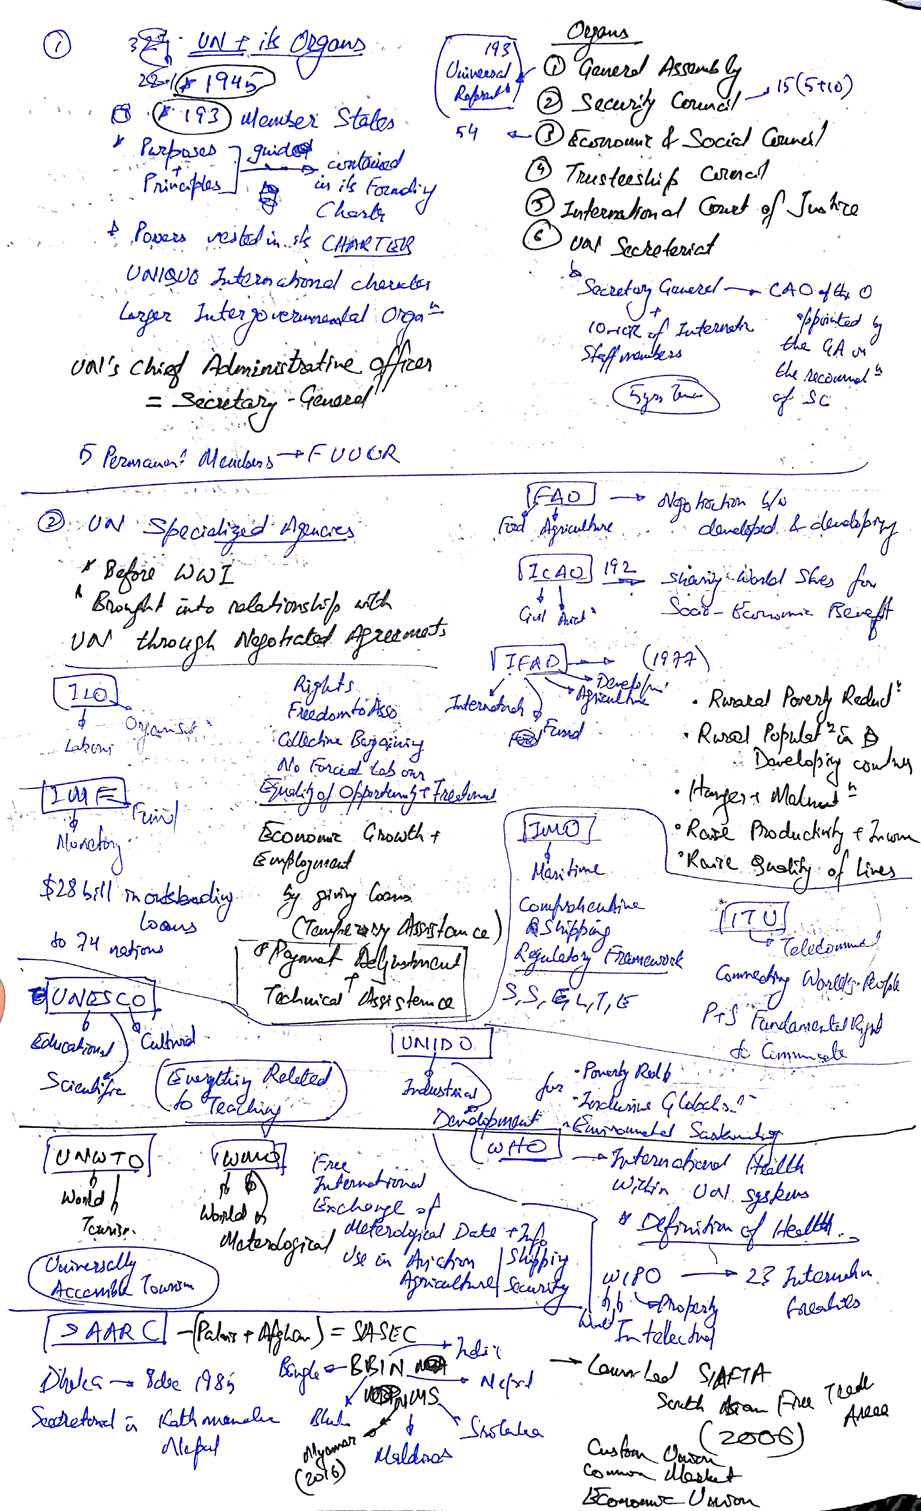 ① UN & its Organs
* 1945
* 193 Member States
* Purposes + Principles guided contained
in its Founding
Charter
* Powers vested in its CHARTER
UNIQUE International character
Larger Intergovernmental Organ
UN's Chief Administrative officer
= Secretary-General
5 Permanent Members → FUUCR
Organs
193
Universal
① General Assembly
② Security Council → 15 (5+10)
54 ← ③ Economic & Social Council
④ Trusteeship Council
⑤ International Court of Justice
⑥ UN Secretariat
Secretary General → CAO of the O
+
appointed by
the GA on
the recommendn
of SC
Staff members
5 yrs
② UN Specialized Agencies
* Before WWI
* Brought into relationship with
UN through Negotiated Agreements
FAO → Negotiation b/w
developed & developing
Food Agriculture
ICAO 192 → Sharing World Skies for
Socio-Economic Benefit
Civil
IFAD → (1977)
Development
Agriculture
International
Fund
• Rural Poverty Reductn
• Rural Populatn in
Developing
• Hunger + Malnutn
• Raise Productivity + Incom
• Raise Quality of Lives
ILO
Labour
Rights
Freedom to Asso
Collective Bargaining
No Forced Labour
Equality of Opportunity + Treatment
IMF
Fund
Monetary
$28 bill in outstanding
loans
to 74 nations
Economic Growth +
Employment
by giving loans
(Temporary Assistance)
* Payment Adjustment
+
Technical Assistance
IMO
Maritime
Comprehensive
Shipping
Regulatory Framework
S, S, E, L, T, E
ITU
Connecting World's People
P+S Fundamental Right
to Communicate
UNESCO
Educational
Cultural
Scientific
Everything Related
to Teaching
UNIDO
Industrial
Development
for
• Poverty Red
• Inclusive
• Environmental
UNWTO
World
Universally
Accessible Tourism
WMO
World
Meterological
Free
International
Exchange of
Meterological Data + Info
Use in Aviation
Agriculture
Shipping
Security
WHO → International Health
within UN systems
* Definition of Health
WIPO → 23 Internatn
Property
Intellectual
SAARC - (Pakis + Afghan) = SASEC
Dhaka → 8 dec 1985
Secretariat in Kathmandu
Nepal
Bangla ← BBIN
India
Nepal
MS
Myanmar
(2016)
Maldives
→ Launched SAFTA
South Asian Free Trade
Area
(2006)
Custom Union
Common Market
Economic Union